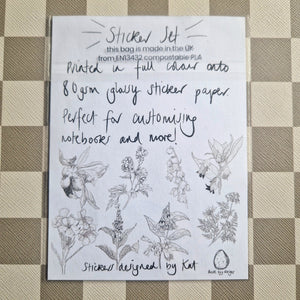 Sticker Set
this bag is made in the UK
from EN13432 compostable PLA
Printed in full colour onto
80gsm glossy sticker paper
Perfect for customising
notebooks and more!
Stickers designed by Kat